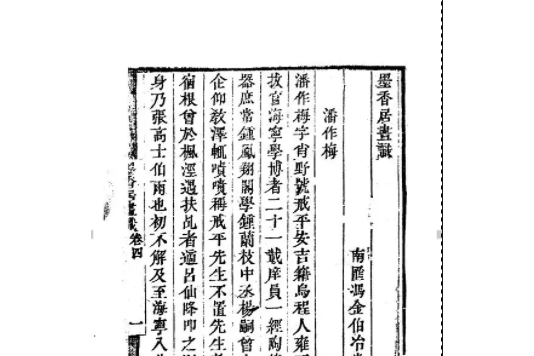 墨香居畫識
南匯馮金伯冶堂
潘作梅
潘作梅字肖野號戒平安吉籍烏程人雍正
拔官海寧學博者二十一載庠員一經陶
器庶常鍾鳳翔閣學鍾蘭枝中丞楊嗣曾
企仰敎澤輒嘖嘖稱戒平先生不置先生
宿根曾於楓涇遇扶乩者適呂仙降叩之
身乃張高士伯雨也初不解及至海寧入
墨香居畫識 卷四
一